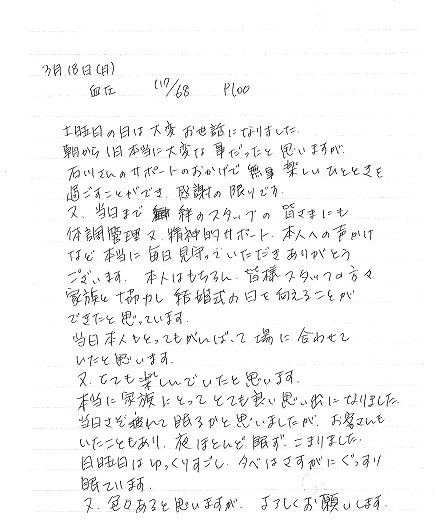 3月18日(月)
血圧 117/68 P100
土曜日の日は大変お世話になりました.
朝から1日本当に大変な事だったと思いますが.
石川さんのサポートのおかげで無事楽しいひとときを
過ごすことができ.感謝の限りです.
又.当日まで絆のスタッフの皆さまにも
体調管理又.精神的サポート.本人への声かけ
など本当に毎日見守っていただきありがとう
ございます.本人はもちろん.皆様スタッフの方々
家族と協力し結婚式の日を向えることが
できたと思っています.
当日本人もとってもがんばって場に合わせて
いたと思います.
又.とても楽しんでいたと思います.
本当に家族にとってとても良い思い出になりました.
当日さぞ疲れて眠るかと思いましたが.お客さんも
いたこともあり.夜ほとんど眠ず.こまりました.
日曜日はゆっくりすごし.夕べはさすがにぐっすり
眠ています.
又.色々あると思いますが.よろしくお願いします.